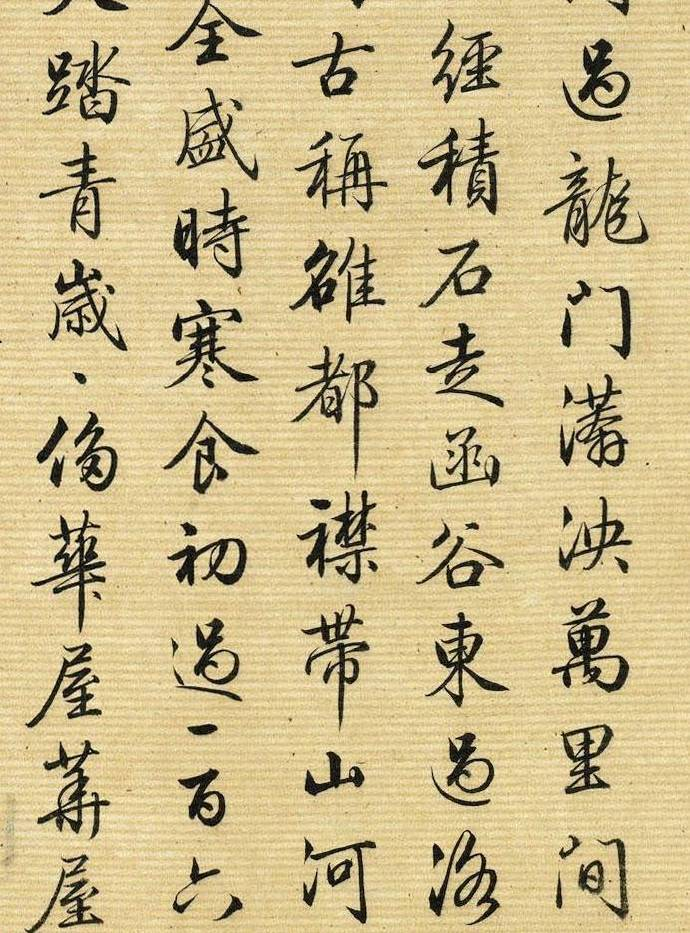 過龍門漭泱萬里間
經積石走函谷東過洛
古稱雒都襟帶山河
全盛時寒食初過一百六
踏青歲、侈華屋華屋